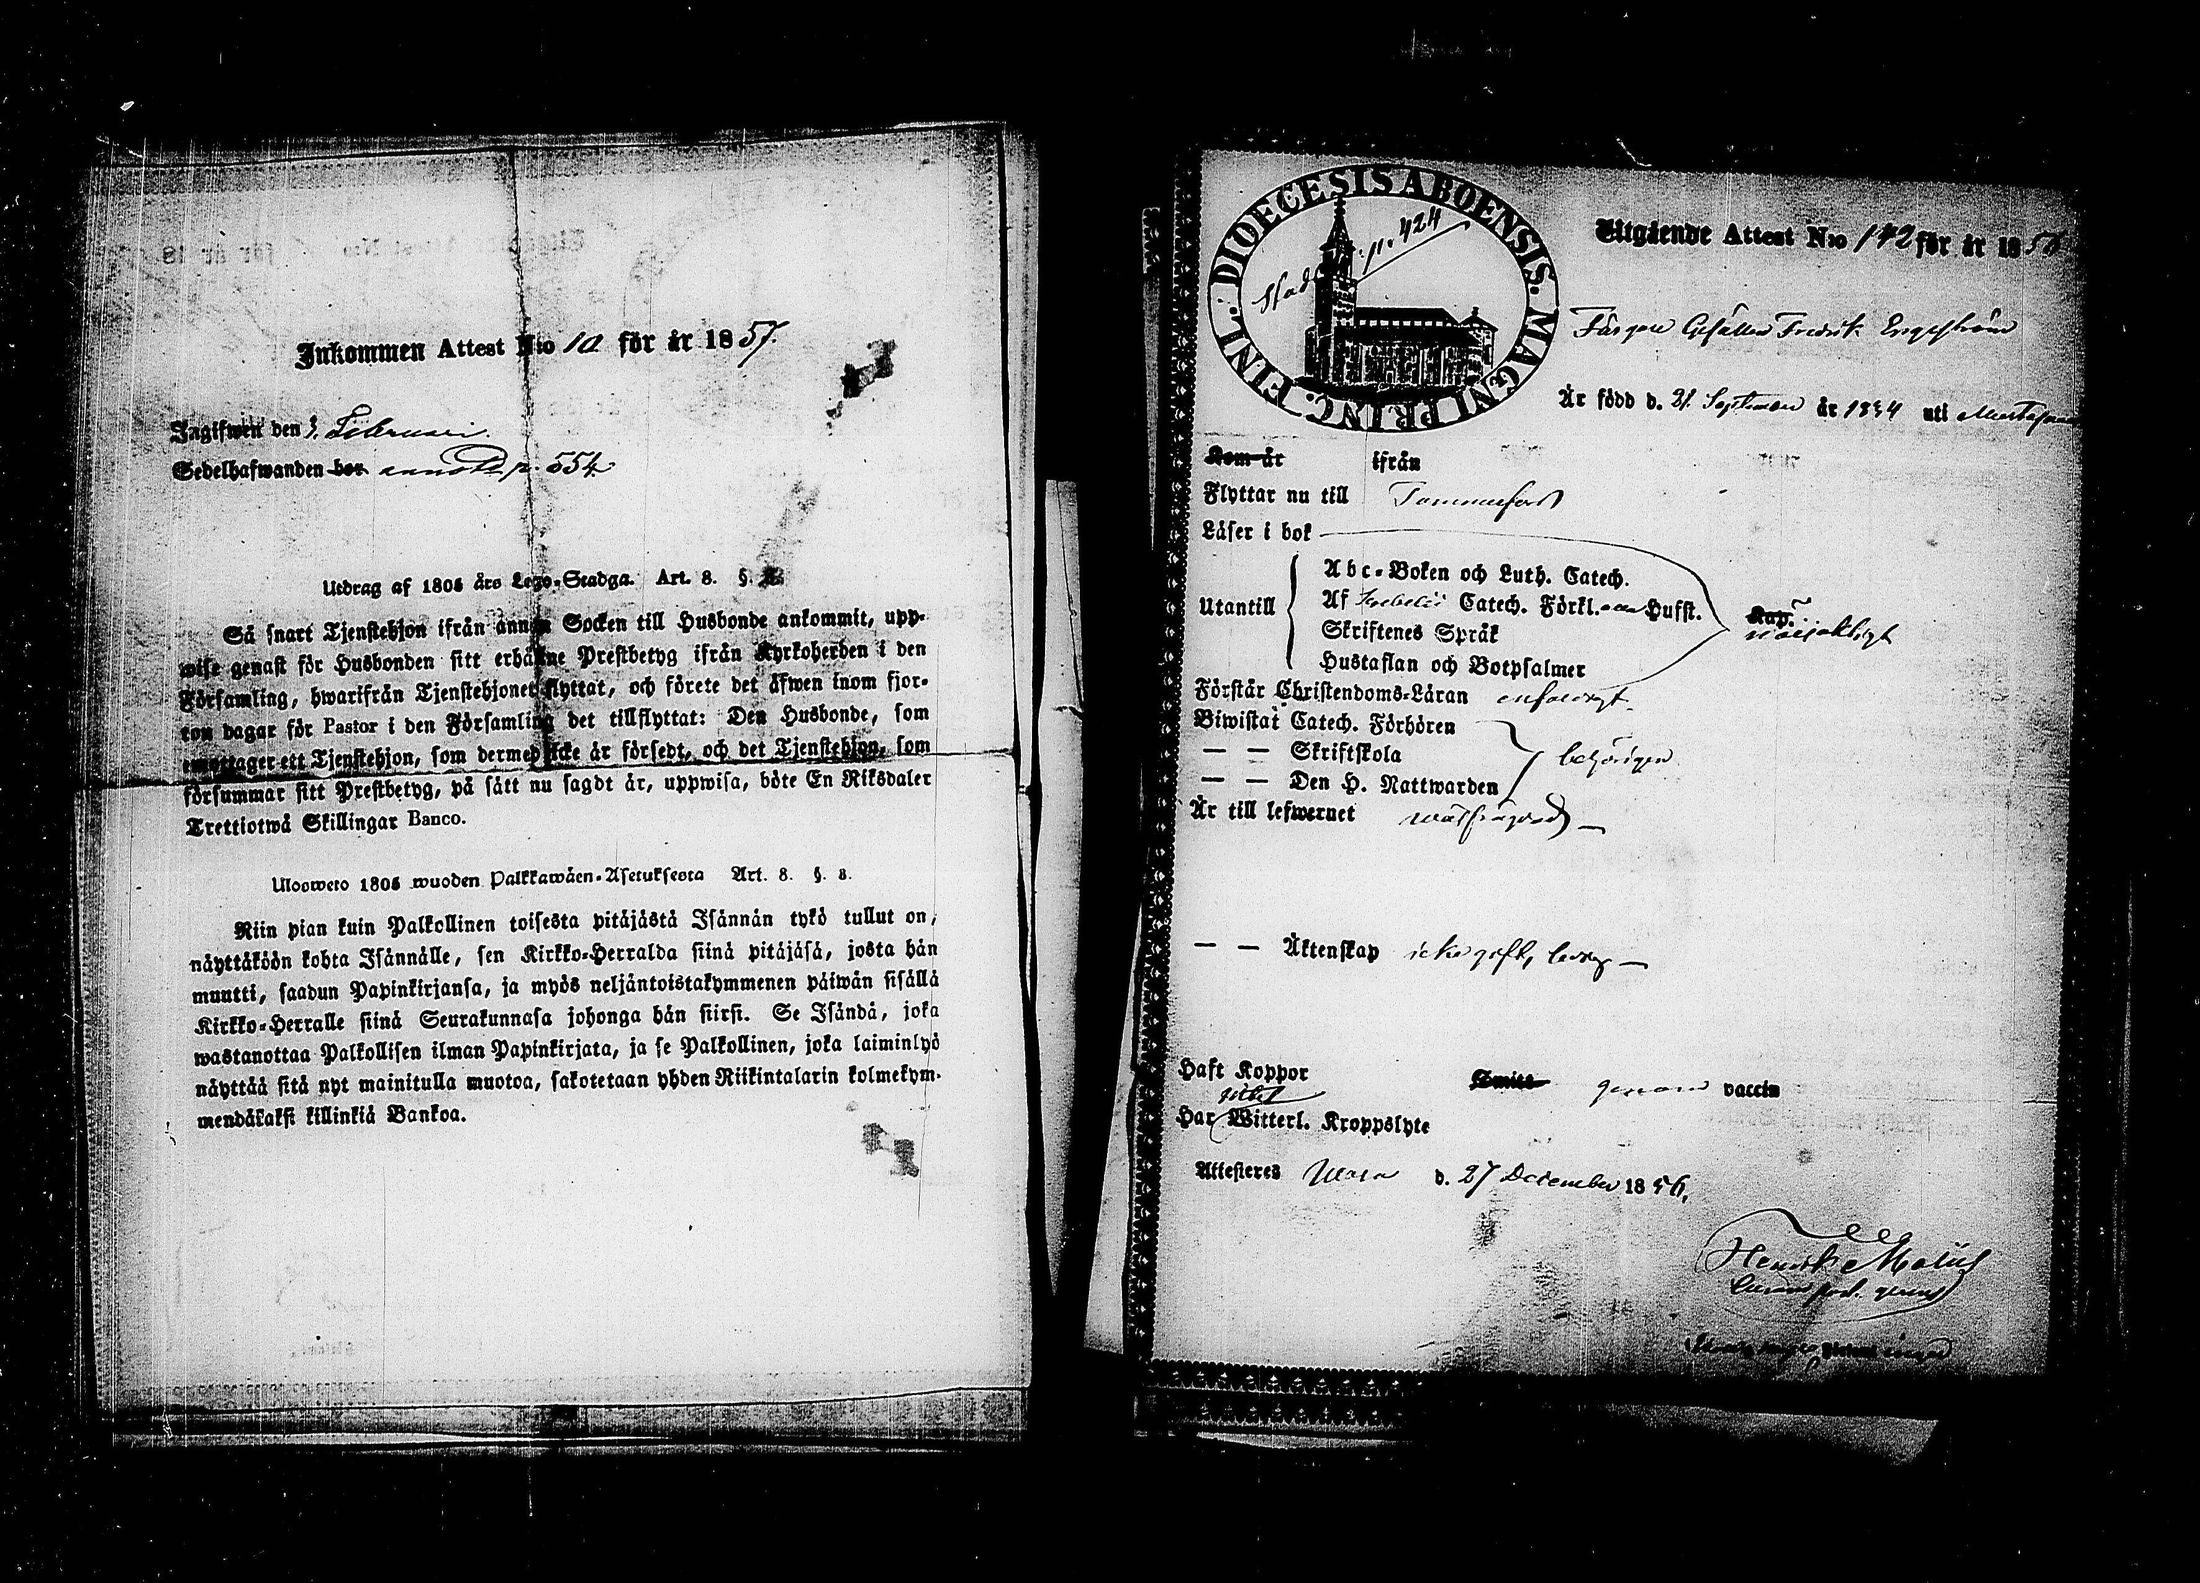 Inkommen Attest N:o 10 för år 1857.
Ingifwen den 3. Februari
Sedelhafwanden bor annot. p. 554.
Utdrag af 1805 års Lego-Stadga. Art. 8. §.
Så snart Tjenstehjon ifrån annan Socken till Husbonde ankommit, upp-
wise genast för Husbonden sitt erhållne Prestbetyg ifrån Kyrkoherden i den
Församling, hwarifrån Tjenstehjonet flyttat, och förete det äfwen inom fjor-
ton dagar för Pastor i den Församling det tillflyttat: Den Husbonde, som
emottager ett Tjenstehjon, som dermed icke är försedt, och det Tjenstehjon, som
försummar sitt Prestbetyg, på sätt nu sagdt är, uppwisa, böte En Riksdaler
Trettiotwå Skillingar Banco.
Ulosweto 1805 wuoden Palkkawäen-Asetuksesta Art. 8. §. 8.
Niin pian kuin Palkollinen toisesta pitäjästä Isännän tykö tullut on,
näyttäköön kohta Isännälle, sen Kirkko-Herralda siinä pitäjäsä, josta hän
muutti, saadun Papinkirjansa, ja myös neljäntoistakymmenen päiwän sisällä
Kirkko-Herralle siinä Seurakunnasa johonga hän siirsi. Se Isändä, joka
wastanottaa Palkollisen ilman Papinkirjata, ja se Palkollinen, joka laiminlyö
näyttää sitä nyt mainitulla muotoa, sakotetaan yhden Riikintalarin kolmekym-
mendäkaksi killinkiä Bankoa.
DIOECESIS ABOENSIS. MAGNI PRINC. FINL.
p. 424
Utgående Attest N:o 142 för år 1856
Färgare Gesällen Fredrik Engström
Är född d. 21. September år 1834 uti
Kom år ifrån
Flyttar nu till Tammerfors
Läser i bok
Utantill
Abc-Boken och Luth. Catech.
Af Catech. Förkl. Hufst.
Skriftenes Språk
Hustaflan och Botpsalmer
Kap.
Förstår Christendoms-Läran enfaldigt
Biwistat Catech. Förhören
— — Skriftskola
— — Den H. Nattwarden
behörigen
Är till lefwernet wälfrägdad —
— — Äktenskap icke gift, ledig —
Haft Koppor Smitt genom vaccin
intet
Har Witterl. Kroppslyte
Attesteres d. 27 December 1856.
Henrik